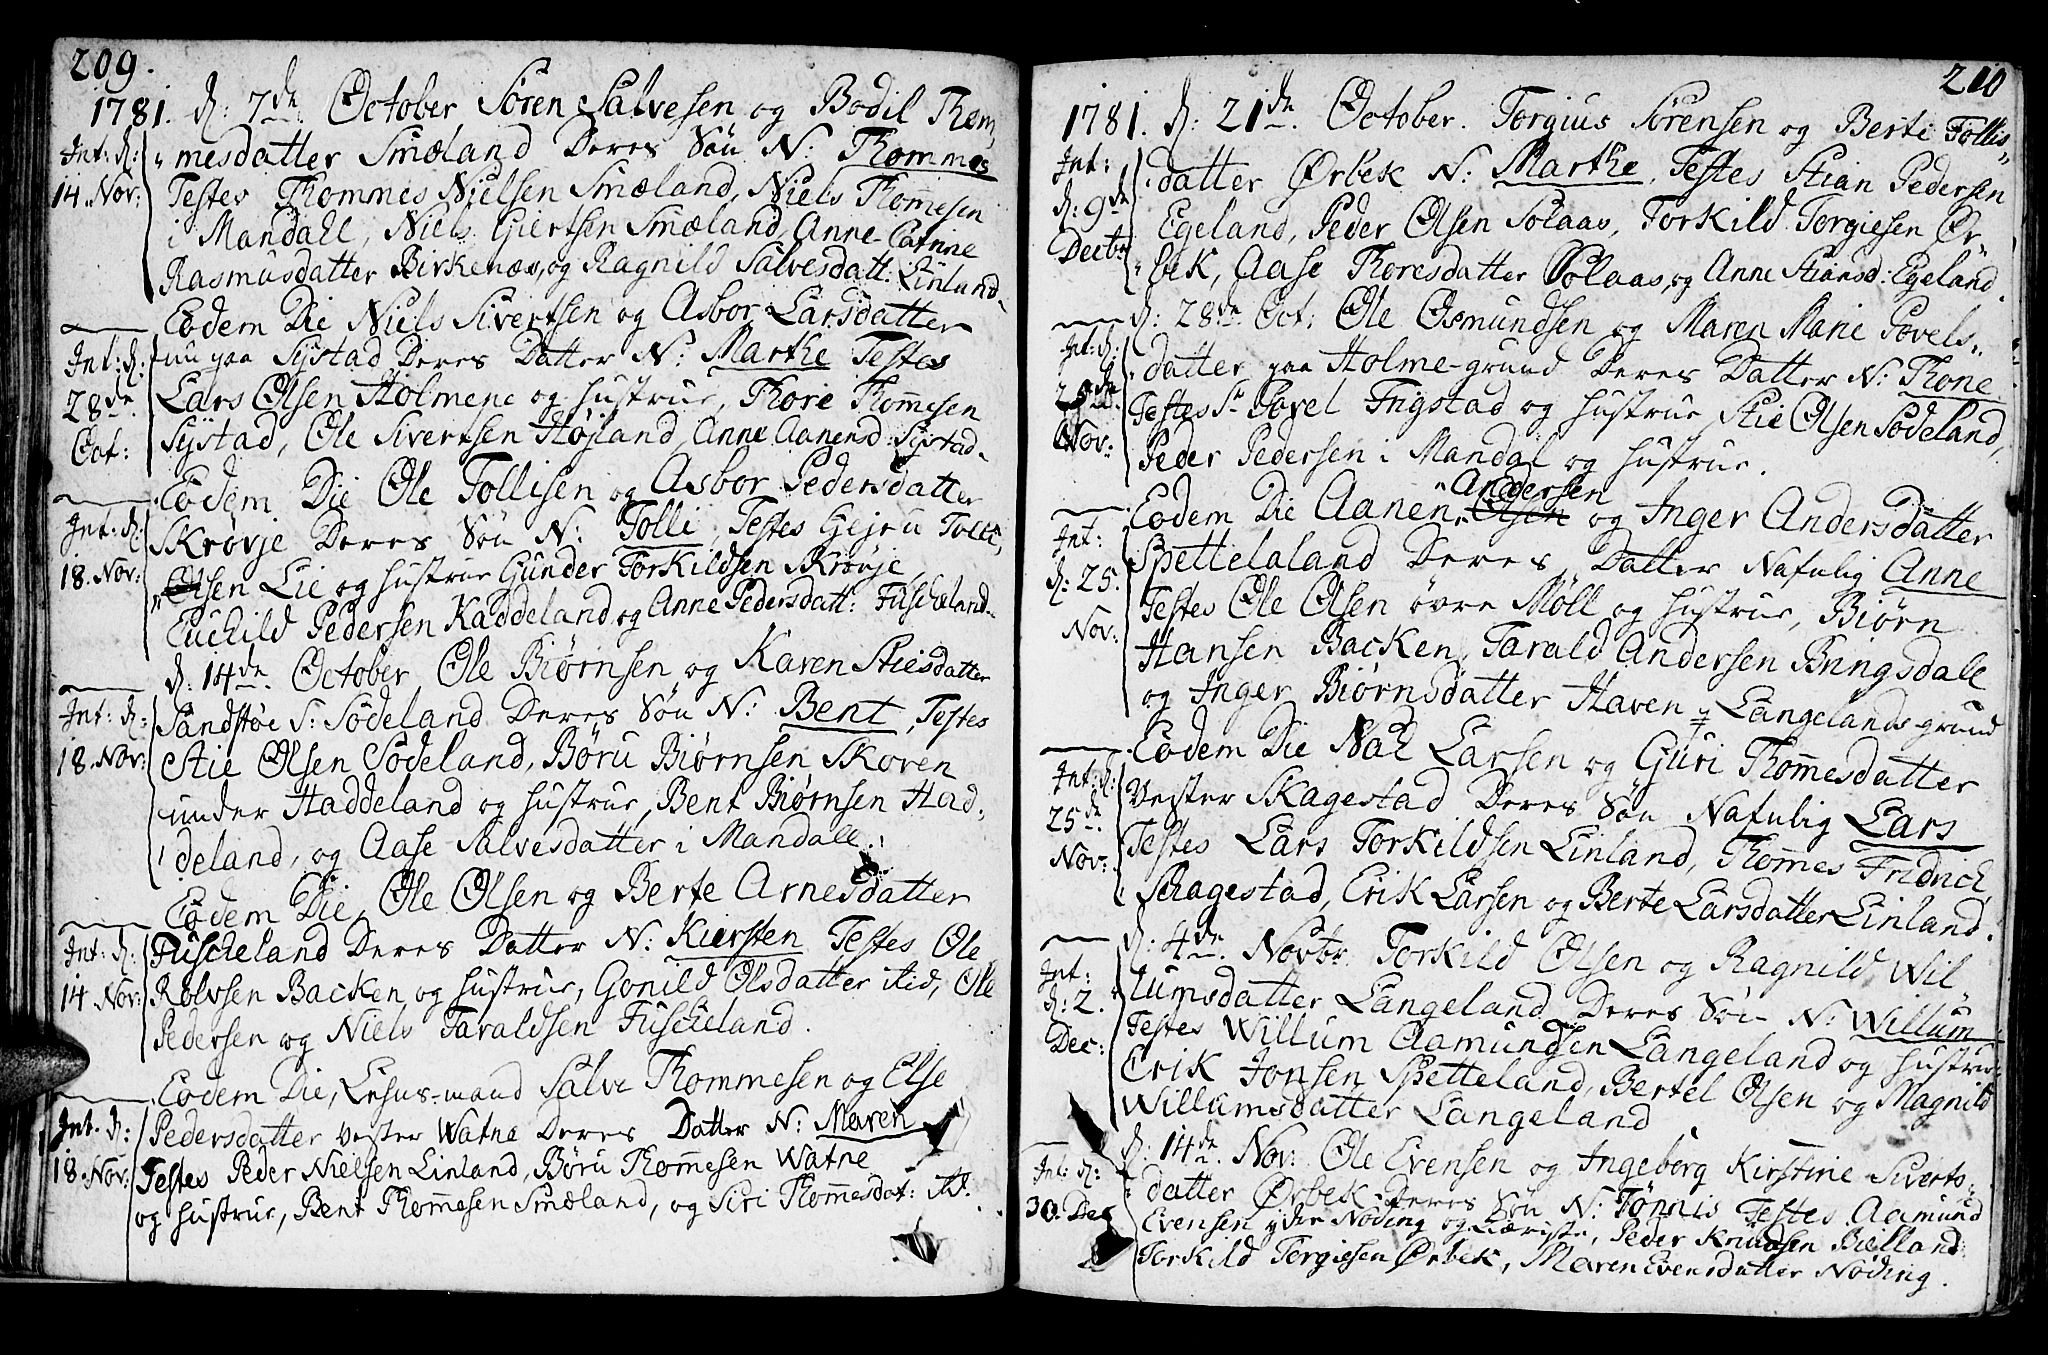 209.
1781. d: 7de October Sören Salvesen og Bodil Thom„
Int: d: „mesdatter Smæland Deres Sön N: Thommes
14. Nov: Testes Thommes Nielsen Smæland, Niels Thom̄esen
i Mandahl, Niels Giertsen Smæland, Anne Catrine
Rasmusdatter Birkenæs, og Ragnild Salvesdatt: Linland
Eodem Die Niels Sivertsen og Asbor Larsdatter
Int: d: nu paa Sijstad Deres Datter N: Marthe Testes
28de Lars Olsen Holmene og hustrue, Thore Thom̄esen
Oct: Sijstad, Ole Sivertsen Höjland, Anne Aanensd: Sijstad
Eodem Die Ole Tollisen og Asbor Pedersdatter
Int: d: Skrövje Deres Sön N: Tolli, Testes
18. Nov: Olsen Lie og hustrue Gunder Torkildsen Skrövje,
Euchild Pedersen Kaddeland og Anne Pedersdatt: Fuscheland
d: 14de October Ole Biörnsen og Karen Stiesdatter
Int: d: Sandstöe S: Södeland Deres Sön N: Bent, Testes
18. Nov: Stie Olsen Södeland, Böru Biörnsen Skoven
under Haddeland og hustrue, Bent Biörnsen Had„
deland, og Aase Salvesdatter i Mandall.
Eodem Die, Ole Olsen og Berte Arnesdatter
Int: d: Fuscheland Deres Datter N: Kiersten Testes Ole
14 Nov: Rolvsen Backen og hustrue, Gonild Olsdatter itid, Ole
Pedersen og Niels Taraldsen Fuscheland.
Eodem Die, Lehns-mand Salve Thommesen og Else
Int. d: Pedersdatter vester Watne Deres Datter N: Maren
18. Nov: Testes Peder Nielsen Linland, Böru Thom̄esen Watne
og hustrue, Bent Thom̄esen Smæland, og Siri Thom̄esdat: itd.
210
1781. d: 21de October. Torgius Sörensen og Berte Tollis„
Int: datter Örbek N: Marthe, Testes Stian Pedersen
d: 9de Egeland, Peder Olsen Solaas, Torkild Torgiesen Ör„
Decbr „bek, Aase Thoresdatter Solaas, og Anne Stiansd: Egeland.
d: 28de Oct: Ole Osmundsen og Maren Marie Povels„
Int: d: datter paa Holme-grund Deres Datter N: Thone
Testes Sr Povel Frigstad og hustrue, Stie Olsen Södeland,
Nov: Peder Pedersen i Mandal og hustrue.
Andersen
Eodem Die Aanen Olsen og Inger Andersdatter
Int: Spettelaland Deres Datter Nafnlig Anne
d: 25. Testes Ole Olsen övre Möll og hustrue, Biörn
Nov: Hansen Backen, Tarald Andersen Bringsdale
og Inger Biörnsdatter Haven = Langelands-grund
Eodem Die Larsen og Guri Thom̄esdatter
Int: d: Vester Skagestad Deres Sön Nafnlig Lars
25de Testes Lars Torkildsen Linland, Thom̄es Fridrich
Nov: Skagestad, Erik Larsen og Berte Larsdatter Linland.
d: 4de Novbr Torkild Olsen og Ragnild Wil„
Int: lumsdatter Langeland Deres Sön N: Willum
d: 2. Testes Willum Aamundsen Langeland og hustrue
Dec: Erik Jonsen Spetteland, Bertel Olsen og Magnild
Willumsdatter Langeland
d: 14de Nov: Ole Evensen og Ingeborg Kirstine Siverts„
Int: d: datter Örbek Deres Sön N: Tönnis Testes Aamund
30. Dec Evensen ydre Nöding og Kiæriste, Peder Knudsen Bielland
Torkild Torgiesen Örbek, Maren Evensdatter Nöding.